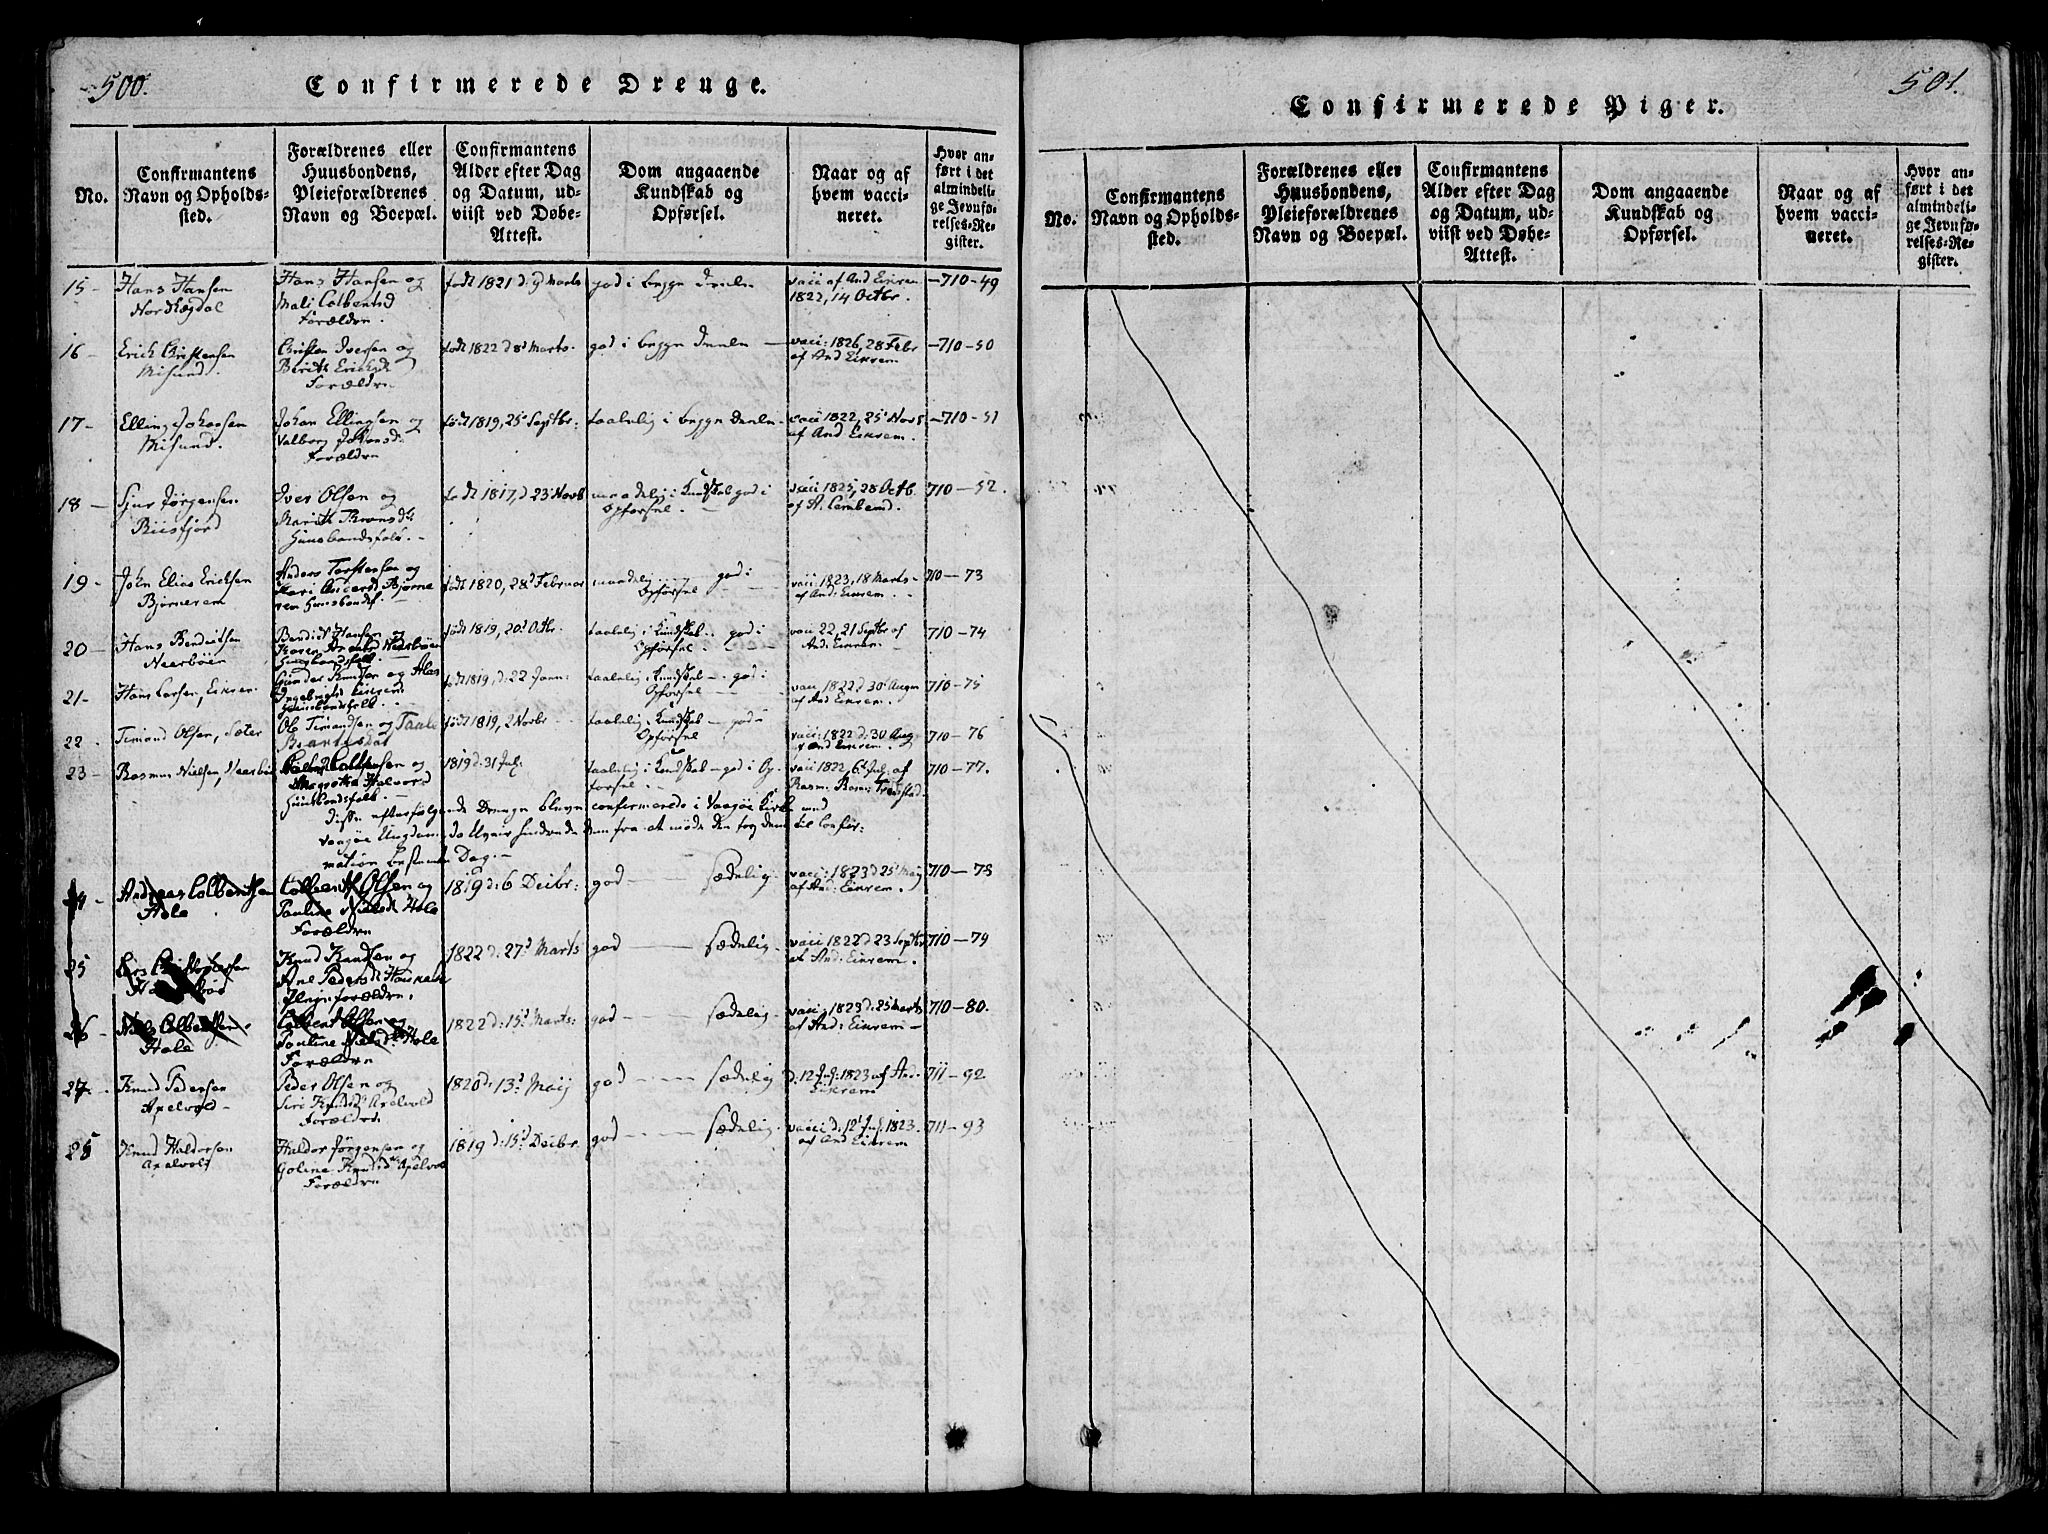 500.
Confirmerede Drenge.
No.
Confirmantens
Navn og Opholds-
sted.
Forældrenes eller
Huusbondens,
Pleieforældrenes
Navn og Boepæl.
Confirmantens
Alder efter Dag
og Datum, ud-
viist ved Døbe-
Attest.
Dom angaaende
Kundskab og
Opførsel.
Naar og af
hvem vacci-
neret.
Hvor an-
ført i det
almindeli-
ge Jevnfø-
relses-Re-
gister.
15 -
Hans Hansen
Nordhægdal
Hans Hansen og
Mali Colbensd
Forældre.
født 1821 d: 9 Marts
god i begge Deele
vacc af And Eikrem
1822, 14 Octbr.
-710-49
16 -
Erick Christensen
Misund.
Christen Iversen og
Berith Ericksd
Forældre
født 1822 d 8 Marts.
god i begge Deele -
vacc: 1826, 28 Febr
af And Eikrem
-710-50
17 -
Elling Johansen
Misund.
Johan Ellingsen og
Valborg Johansd:
Forældre
født 1819, 25 Septbr:
taalelig i begge Deele -
vacc 1822, 25 Novb
af And Eikrem.
-710-51
18 -
Sjur Jørgensen
Riisfjord
Iver Olsen og
Marith
Huusbondsfolk. -
født 1817, d 23 Novb
maadelig i Kundskab god i
Opførsel. -
vacc: 1825, 28 Octb.
af A.
710 - 52.
19 -
John Elias Ericksen
Bjørnerem
Anders Torstensen og
Kari Bjørne
rem Huusbondsf.
født 1820, 28 Februar
maadelig god i
Opførsel
vacc: 1823, 18 Marts -
af And: Eikrem.
710 - 73
20 -
Hans Bendictsen
Neerbøen
Bendict Hansen og
Karen Neerbøen
Huusbondsfolk
født 1819, 20 Octbr.
taalelig i Kundskab. god i
Opførsel.
vacc 22, 21 Septbr af
And: Eikrem.
710 - 74
21 -
Hans Larsen, Eikrem.
Gunder Knutsen og
Eikrem
Huusbondsfolk
født 1819, d: 22 Janu:
taalelig i Kundskab - god i
Opførsel
vacc, 1822 d 30 Augu
af And Eikrem.
710 - 75
22 -
Timand Olsen, Sæter
Ole Timandsen og
født 1819, 2 Novbr
taalelig i Kundskab - god i
Opførsel
vacc: 1822 d: 30 Aug
af And Eikrem.
710 - 76
23 -
Rasmus Nielsen, Neerbø
Halvord
Huusbondsfolk. -
1819 d: 31 Jul:
taalelig i Kundskab - god i Op
førsel.
vacc 1822, 6 Jul. af
Rasm: Rasm:
710 - 77.
disse efterfølgende Drenge bleve confirmerede i Vaagøe Kirke med
Vaagøe Ungdom, da Uveir hindrede dem fra at møde den dertil Confir-
mation bestemte Dag. -
Andreas Colbentsen
Hole
Colbent Olsen og
Pauline Nielsd Hole
Forældre
1819 d: 6 Decbr:
god - - sædelig.
vacc: 1823 d 25 Maij
af And: Eikrem.
710 - 78
25
Lars Christophersen
Knud Knudsen og
Ane Pedersd
Plejeforældre.
1822 d: 27 Marts
god - - sædelig.
vacc 1822 d 23 Septbr
af And: Eikrem.
710 - 79
26 -
Niels Colbentsen.
Hole
Colbent Olsen og
Pauline Nielsd: Hole
Forældre
1822 d: 15 Marts:
god - - sædelig -
vacc, 1823 d: 25 Marts
af And: Eikrem -
710 - 80.
27 -
Knud Pedersen
Axelvold -
Peder Olsen og
Siri Knudsd Axelvold
Forældre
1820 d: 13 Maij
god - - sædelig
d: 12 Jul: 1823 af And.
Eikrem
711 - 92
28
Knud Haldorsen
Axelvold
Haldor Jørgensen og
Goline Knudsd Axelvold
Forældre
1819 d: 15 Decbr.
god - - sædelig.
vacc: d: 12 Jul. 1823.
af And Eikrem
711 - 93
501.
Confirmerede Piger.
No.
Confirmantens
Navn og Opholds-
sted.
Forældrenes eller
Huusbondens,
Pleieforældrenes
Navn og Boepæl.
Confirmantens
Alder efter Dag
og Datum, ud-
viist ved Døbe-
Attest.
Dom angaaende
Kundskab og
Opførsel.
Naar og af
hvem vacci-
neret.
Hvor an-
ført i det
almindeli-
ge Jevnfø-
relses-Re-
gister.